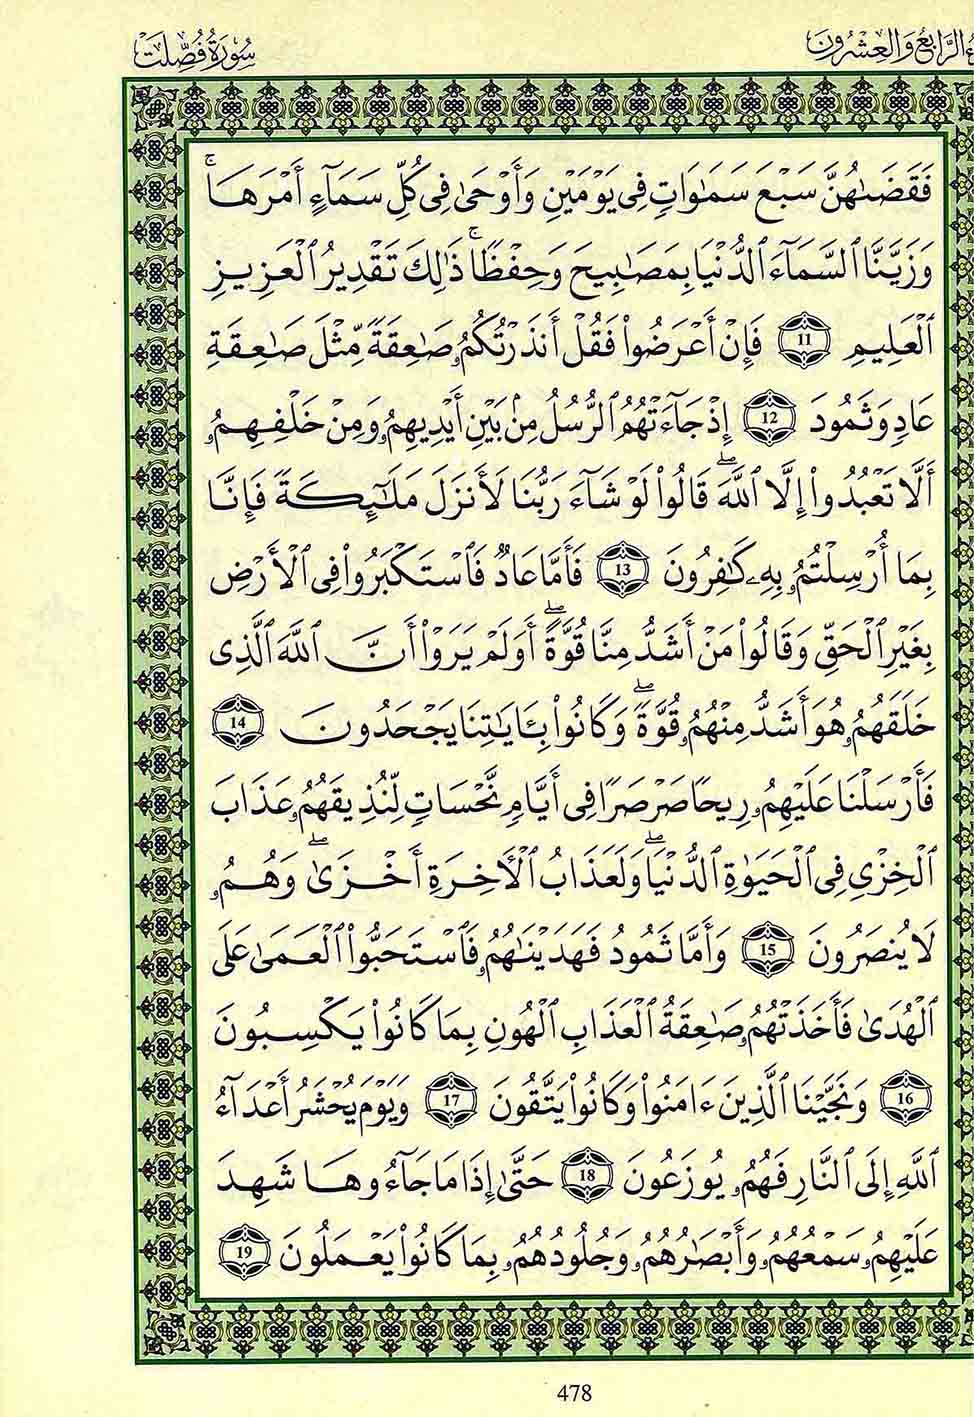 ءُ الرَّابِعُ وَالعِشْرُونَ
سُورَةُ فُصِّلَتْ
فَقَضَىٰهُنَّ سَبْعَ سَمَٰوَاتٍ فِى يَوْمَيْنِ وَأَوْحَىٰ فِى كُلِّ سَمَآءٍ أَمْرَهَاۚ
وَزَيَّنَّا اَ۬لسَّمَآءَ اَ۬لدُّنْيَا بِمَصَٰبِيحَ وَحِفْظٗاۚ ذَٰلِكَ تَقْدِيرُ اُ۬لْعَزِيزِ
اِ۬لْعَلِيمِ 11 فَإِنْ أَعْرَضُواْ فَقُلْ أَنذَرْتُكُمُۥ صَٰعِقَةٗ مِّثْلَ صَٰعِقَةِ
عَادٖ وَثَمُودَ 12 إِذْ جَآءَتْهُمُ اُ۬لرُّسُلُ مِنۢ بَيْنِ أَيْدِيهِمُۥ وَمِنْ خَلْفِهِمُۥ
أَلَّا تَعْبُدُواْ إِلَّا اَ۬للَّهَۖ قَالُواْ لَوْ شَآءَ رَبُّنَا لَأَنزَلَ مَلَٰٓئِكَةٗ فَإِنَّا
بِمَا أُرْسِلْتُمُۥ بِهِۦ كَٰفِرُونَ 13 فَأَمَّا عَادٞ فَاسْتَكْبَرُواْ فِى اِ۬لْأَرْضِ
بِغَيْرِ اِ۬لْحَقِّ وَقَالُواْ مَنْ أَشَدُّ مِنَّا قُوَّةًۖ أَوَلَمْ يَرَوْاْ أَنَّ اَ۬للَّهَ اَ۬لَّذِى
خَلَقَهُمُۥ هُوَ أَشَدُّ مِنْهُمُۥ قُوَّةٗۖ وَكَانُواْ بِـَٔايَٰتِنَا يَجْحَدُونَ 14
فَأَرْسَلْنَا عَلَيْهِمُۥ رِيحٗا صَرْصَرٗا فِى أَيَّامٖ نَّحْسَاتٖ لِّنُذِيقَهُمُۥ عَذَابَ
اَ۬لْخِزْىِ فِى اِ۬لْحَيَوٰةِ اِ۬لدُّنْيَاۖ وَلَعَذَابُ اُ۬لْأٓخِرَةِ أَخْزَىٰۖ وَهُمُۥ
لَا يُنصَرُونَ 15 وَأَمَّا ثَمُودُ فَهَدَيْنَٰهُمُۥ فَاسْتَحَبُّواْ اُ۬لْعَمَىٰ عَلَى
اَ۬لْهُدَىٰ فَأَخَذَتْهُمُۥ صَٰعِقَةُ اُ۬لْعَذَابِ اِ۬لْهُونِ بِمَا كَانُواْ يَكْسِبُونَ
16 وَنَجَّيْنَا اَ۬لَّذِينَ ءَامَنُواْ وَكَانُواْ يَتَّقُونَ 17 وَيَوْمَ يُحْشَرُ أَعْدَآءُ
اُ۬للَّهِ إِلَى اَ۬لنَّارِ فَهُمُۥ يُوزَعُونَ 18 حَتَّىٰ إِذَا مَا جَآءُوهَا شَهِدَ
عَلَيْهِمُۥ سَمْعُهُمُۥ وَأَبْصَٰرُهُمُۥ وَجُلُودُهُمُۥ بِمَا كَانُواْ يَعْمَلُونَ 19
478